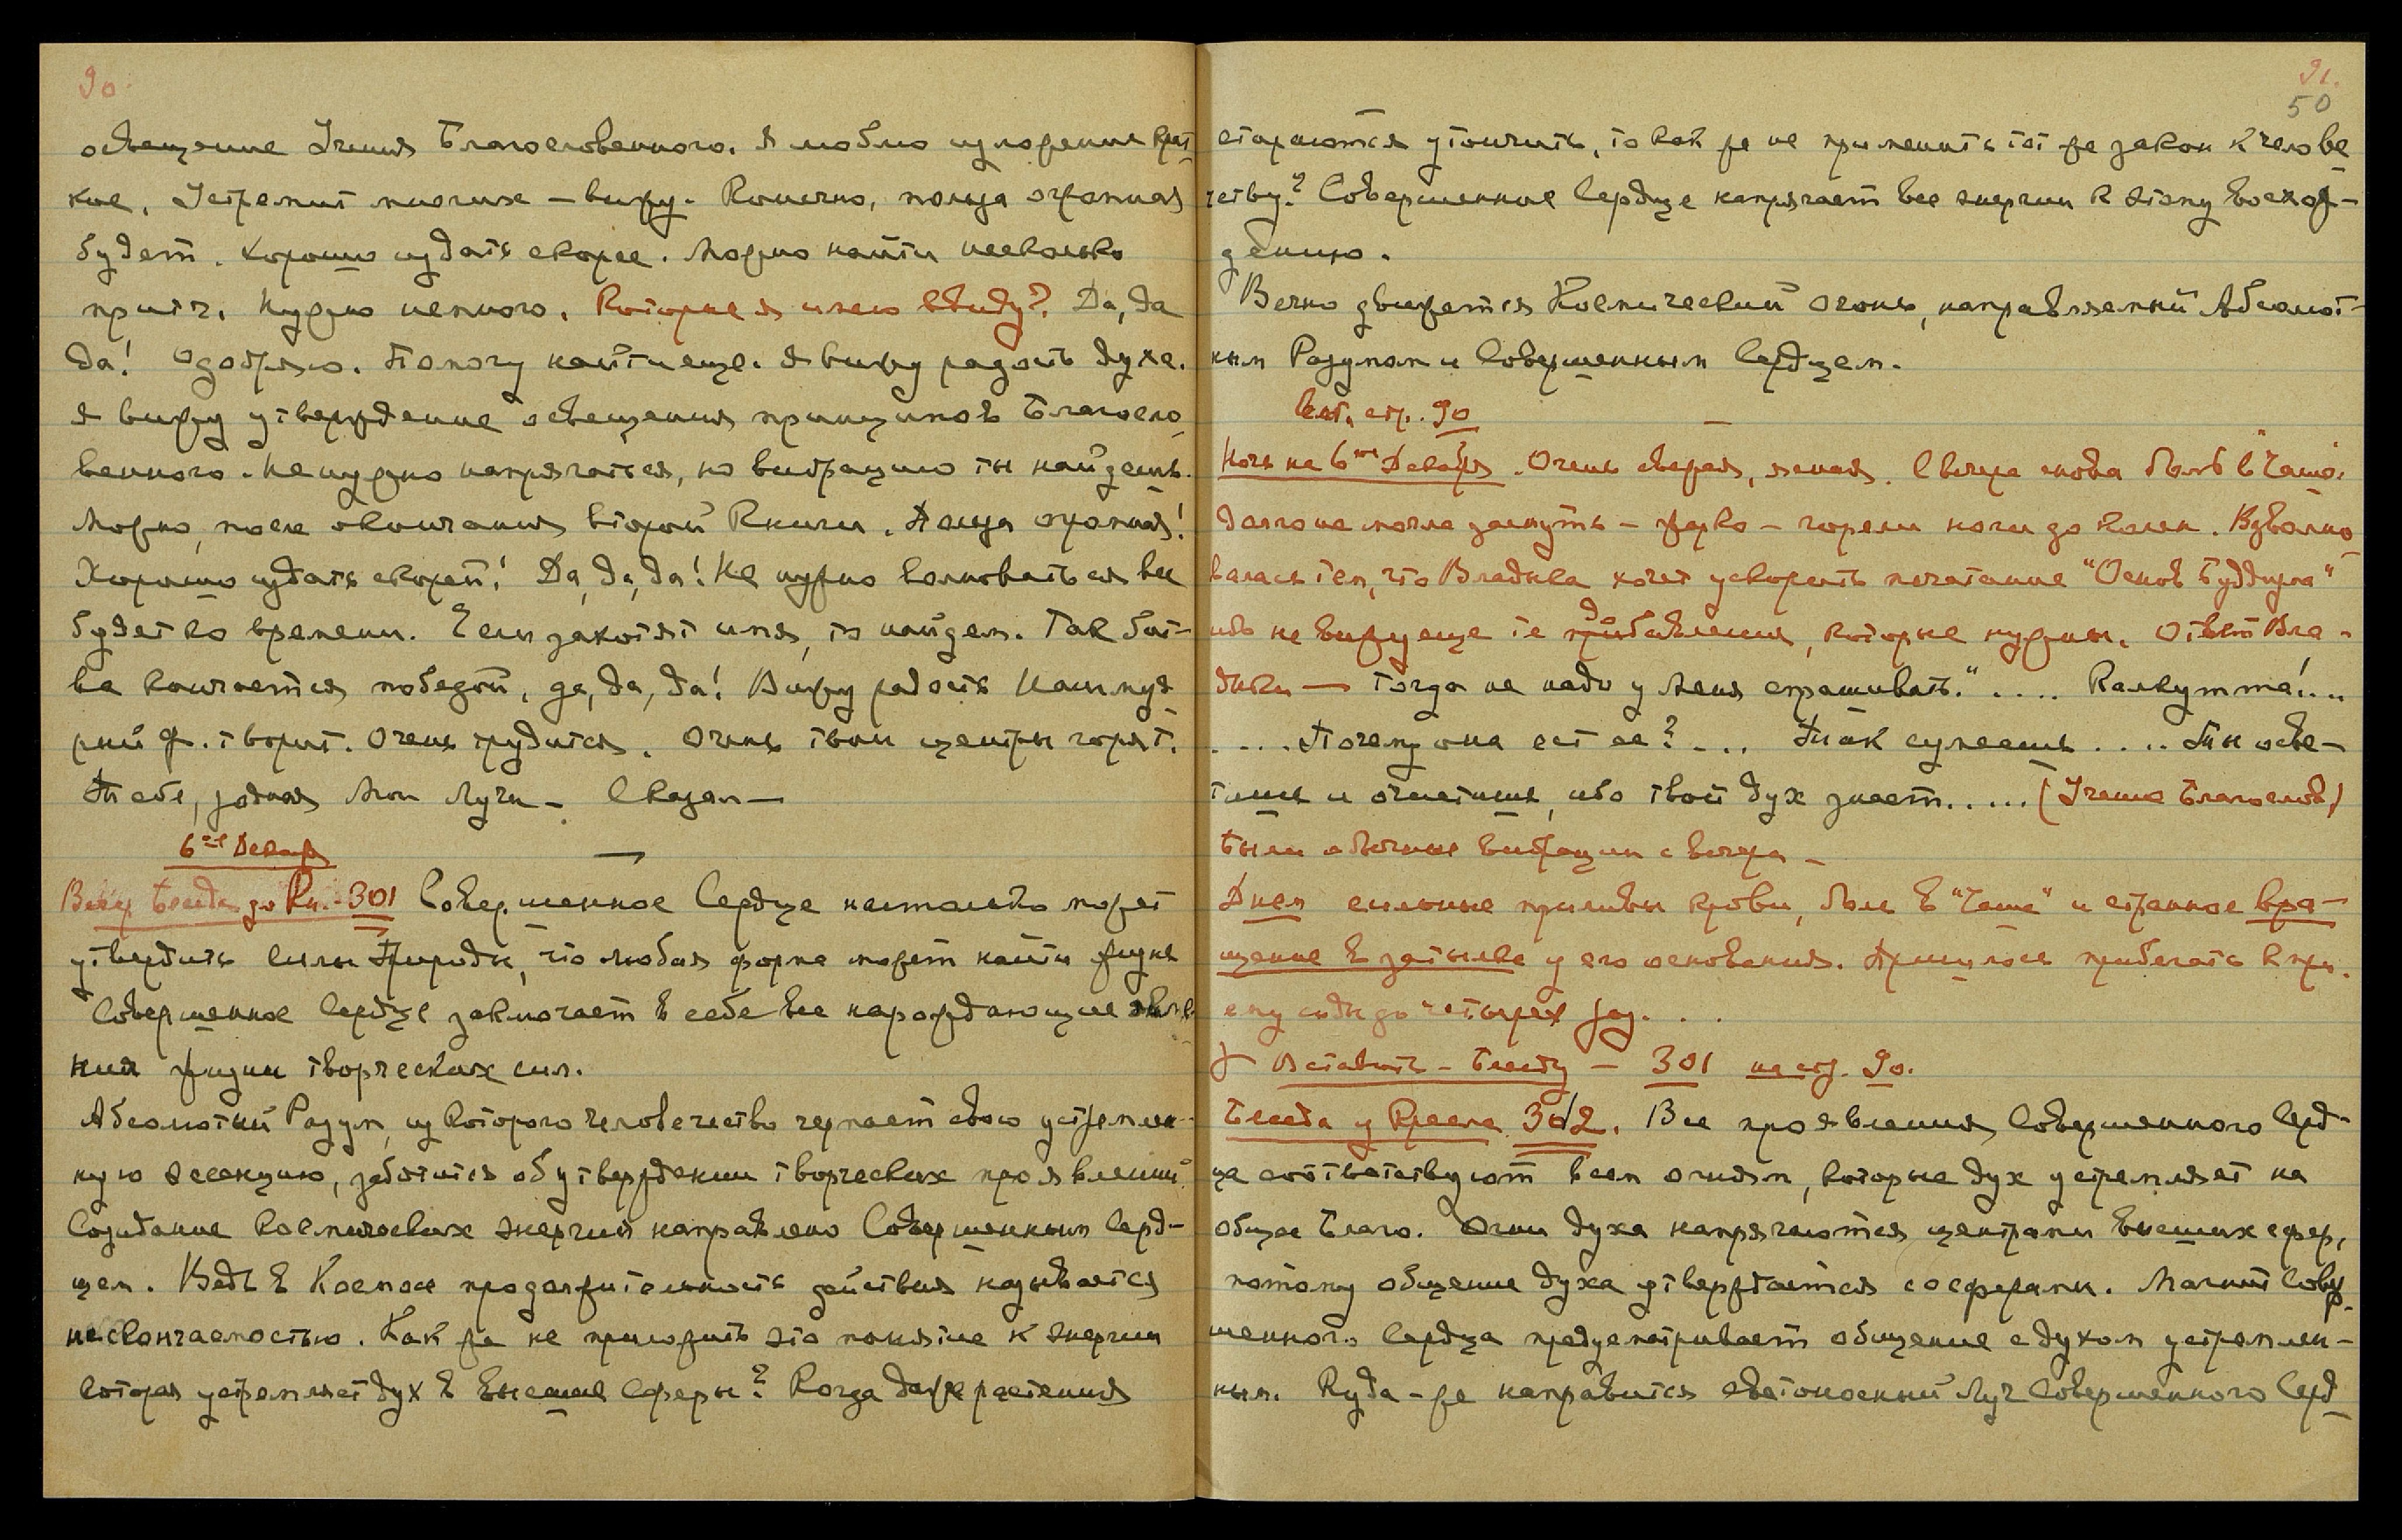 90.
освещение Учения Благословенного. Я люблю изложение крат-
кое. Устремит многих – вижу. Конечно, польза огромная
будет. Хорошо издать скорее. Можно найти несколько
притч. Нужно немного. Которые я имею ввиду? Да, да
да! Одобряю. Помогу найти еще. Я вижу радость духа.
Я вижу утверждение освещения принципов Благосло-
венного. Не нужно напрягаться, но вибрацию ты найдешь.
Можно, после окончания второй Книги. Польза огромная!
Хорошо издать скорей! Да, да, да! Не нужно волноваться все
будет во времени. Если захотят имя, то найдем. Так бит-
ва кончается победой, да, да, да! Вижу радость Наш муд-
рый ф. творит. Очень трудится. Очень твои центры горят.
Тебе, родная Мои Лучи – Сказал —
6-ое Декабр
Бесда до Кн. – 301 Совершенное Сердце настолько может
утвердить силы Природы, что любая форма может найти жизнь
Совершенное Сердце заключает в себе все нарождающие явле-
ния жизни творческих сил.
Абсолютный Разум, из которого человечество черпает свою устремлен-
ную эссенцию, заботится об утверждении творческих проявлений.
Созидание Космических энергий направлено Совершенным Серд-
цем. Ведь в Космосе продолжительность действия называется
нескончаемостью. Как же не приложить это понятие к энергии
которая устремляет дух в высшие Сферы? Когда даже растения
91.
50
стараются утончить, то как же не применить тот же закон к челове
честву? Совершенное Сердце напрягает все энергии к этому восхож-
дению.
Вечно движется Космический огонь, направляемый Абсолют-
ным Разумом и Совершенным Сердцем.
Вст. стр. 90
Ночь на 6-ое Декабря. Очень свежая, ясная. С вечера снова боль в "Чаше".
Долго не могла заснуть – жарко – горели ноги до колен. Взволно
валась тем, что Владыка хочет ускорить печатание "Основ Буддизма"
ибо не вижу еще те добавления, которые нужны. Ответ Вла-
дыки — Тогда не надо у Меня спрашивать." .... Калькутта!...
.... Почему она ест ее? ... Так сумеешь .... Ты осве-
тишь и очистишь, ибо твой дух знает..... (Учение Благослов.)
Были обычные вибрации с вечера –
Днем сильные приливы крови, боли в "Чаше" и странное вра-
щение в затылке у его основания. Пришлось прибегать к при-
ему соды до четырех раз. . .
Вставить – Беседу – 301 на стр. 90.
Беседа у Кресла 302. Все проявления Совершенного Серд-
ца соответствуют всем огням, которые дух устремляет на
общее благо. Огни духа напрягаются центрами высших сфер,
потому общение духа утверждается со сферами. Магнит Совер-
шенного Сердца предусматривает общение с духом устремлен-
ным. Куда-же направится светоносный Луч Совершенного Серд-